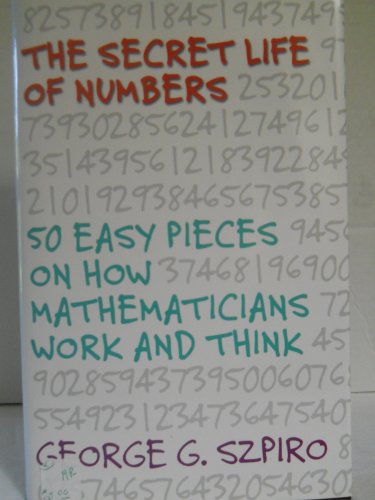 82573891845194373945
THE SECRET LIFE 9
OF NUMBERS 253201
739302856241274961 2
35143956121839228 49
21019293846567538 5
50 EASY PIECES 945
ON HOW 37468196900
MATHEMATICIANS 72
WORK AND THINK 45
90285943739500607 6
55492312347364754 0
GEORGE G. SZPIRO 8
746576432054630